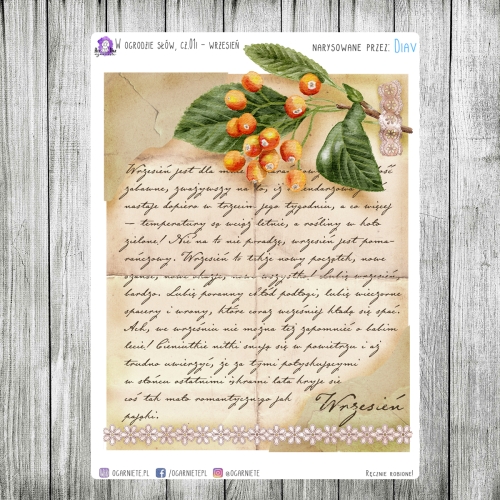 W ogrodzie słów, cz.01 - wrzesień
narysowane przez: Diav
Wrzesień jest dla mnie
zabawne, zważywszy na to, iż
nastaje dopiero w trzecim jego tygodniu, a co więcej
— temperatury są wciąż letnie, a rośliny w koło
zielone! Nic na to nie poradzę, wrzesień jest poma-
rańczowy. Wrzesień to także nowy początek, nowe
nowe wszystko! Lubię wrzesień,
bardzo. Lubię poranny chłód podłogi, lubię wieczorne
spacery i wrony, które coraz wcześniej kładą się spać.
Ach, we wrześniu nie można też zapomnieć o babim
lecie! Cieniutkie nitki snują się w powietrzu i aż
trudno uwierzyć, że za tymi połyskującymi
w słońcu ostatnimi iskrami lata kryje się
coś tak mało romantycznego jak
pająki.
Wrzesień
ogarniete.pl
/ogarnietepl
@ogarniete
Ręcznie robione!